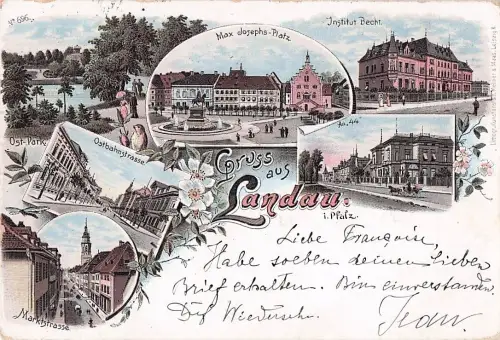 No 696
Max Josephs-Platz
Institut Becht.
Ost-Park.
Ostbahnstrasse
Marktstrasse.
Gruss aus
Landau.
i. Pfalz.
Liebe Françoise,
Habe soeben deinen lieben
Brief erhalten. Bin einverstanden.
Auf Wiedersehn.
Jean.